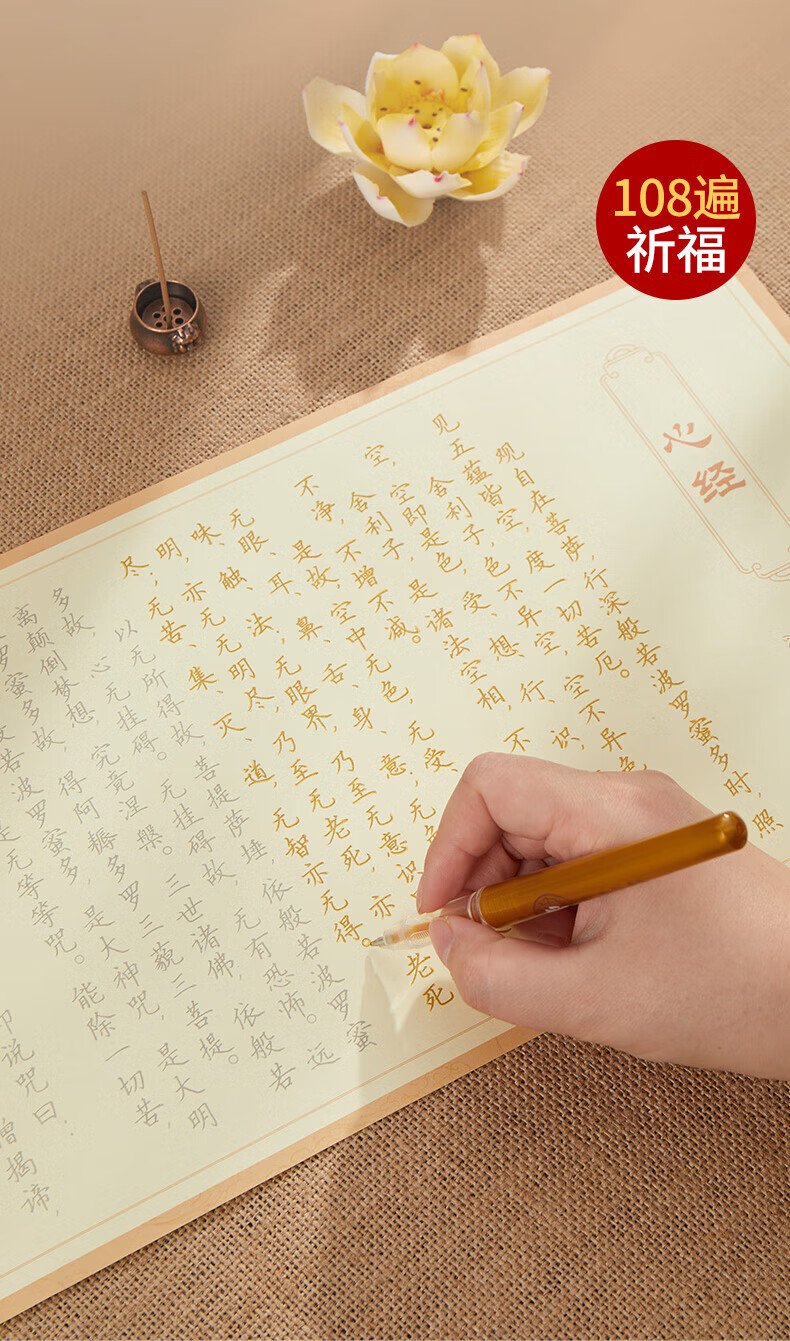 108遍
祈福
心经
观自在菩萨,行深般若波罗蜜多时,照
见五蕴皆空,度一切苦厄。
舍利子,色不异空,空不异色
空即是色。受、想、行、识
空,
舍利子,是诸法空相,不
不净,不增不减。
是故,空中无色,无受、
无眼、耳、鼻、舌、身、意,无色
味、触、法;无眼界,乃至无意识
明,亦无无明尽,乃至无老死,亦 老死
尽;无苦、集、灭、道,无智亦无得。
以无所得故,菩提萨埵,依般若波罗蜜
多故,心无挂碍。无挂碍故,无有恐怖。远
离颠倒梦想,究竟涅槃。三世诸佛,依般若
罗蜜多故,得阿耨多罗三藐三菩提。
若波罗蜜多,是大神咒,是大明
无等等咒。能除一切苦,
说咒曰:
揭谛,